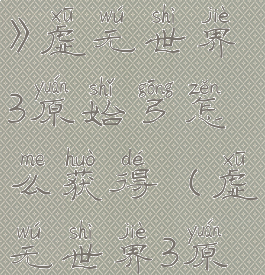 xū wú shì jiè
》虚无世界
yuán shǐ gōng zěn
3原始弓怎
me huò dé xū
么获得（虚
wú shì jiè yuán
无世界3原